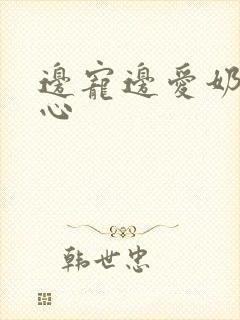 邊寵邊愛奶
心
韩世忠